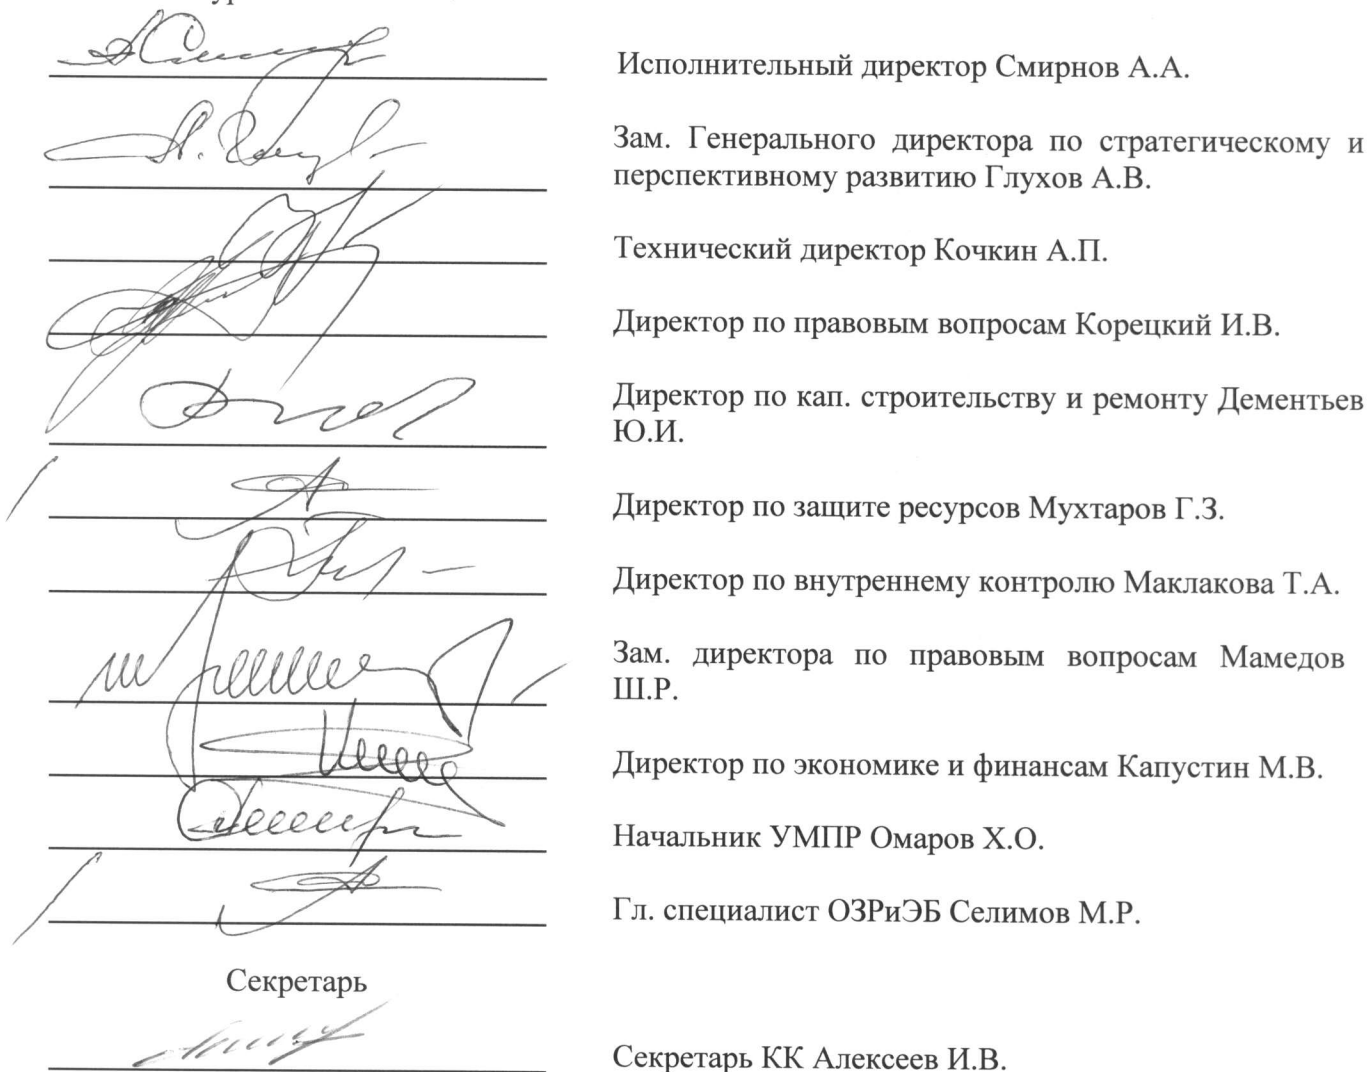 Исполнительный директор Смирнов А.А.
Зам. Генерального директора по стратегическому и
перспективному развитию Глухов А.В.
Технический директор Кочкин А.П.
Директор по правовым вопросам Корецкий И.В.
Директор по кап. строительству и ремонту Дементьев
Ю.И.
Директор по защите ресурсов Мухтаров Г.З.
Директор по внутреннему контролю Маклакова Т.А.
Зам. директора по правовым вопросам Мамедов
Ш.Р.
Директор по экономике и финансам Капустин М.В.
Начальник УМПР Омаров Х.О.
Гл. специалист ОЗРиЭБ Селимов М.Р.
Секретарь
Секретарь КК Алексеев И.В.